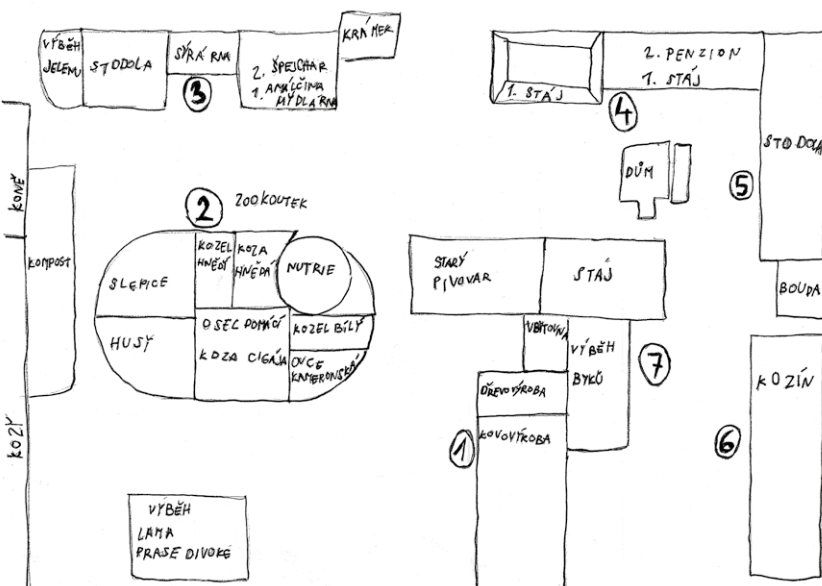 VÝBĚH
JELENU
STODOLA
SÝRÁRNA
2. ŠPEJCHAR
1. AMÁLČINA
MÝDLÁRNA
KRÁMEK
3
1. STÁJ
2. PENZION
1. STÁJ
4
STODOLA
5
DŮM
BOUDA
KONĚ
KOMPOST
KOZY
2 ZOOKOUTEK
SLEPICE
KOZEL
HNĚDÝ
KOZA
HNĚDÁ
NUTRIE
HUSY
OSEL DOMÁCÍ
KOZA CIGÁJA
KOZEL BÍLÝ
OVCE
KAMERONSKÁ
STARÝ
PIVOVAR
STÁJ
VÝBĚH
BYKŮ
7
DŘEVOVÝROBA
KOVOVÝROBA
1
KOZÍN
6
VÝBĚH
LAMA
PRASE DIVOKÉ